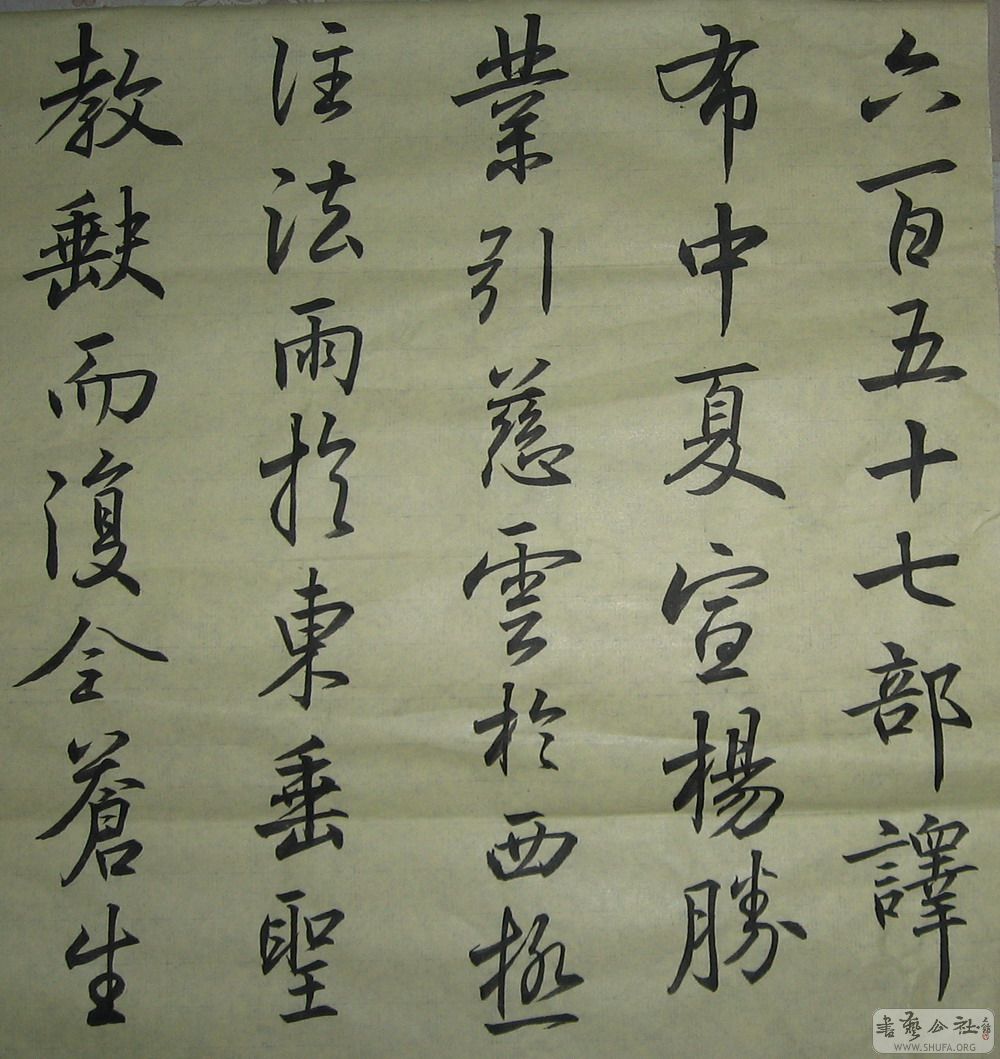 六百五十七部譯
布中夏宣楊勝
業引慈雲於西極
注法雨於東垂聖
教缺而復全蒼生
書藝公社
WWW.SHUFA.ORG